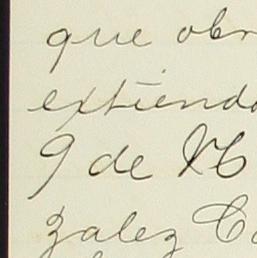 que obr
extiendo
9 de
zalez